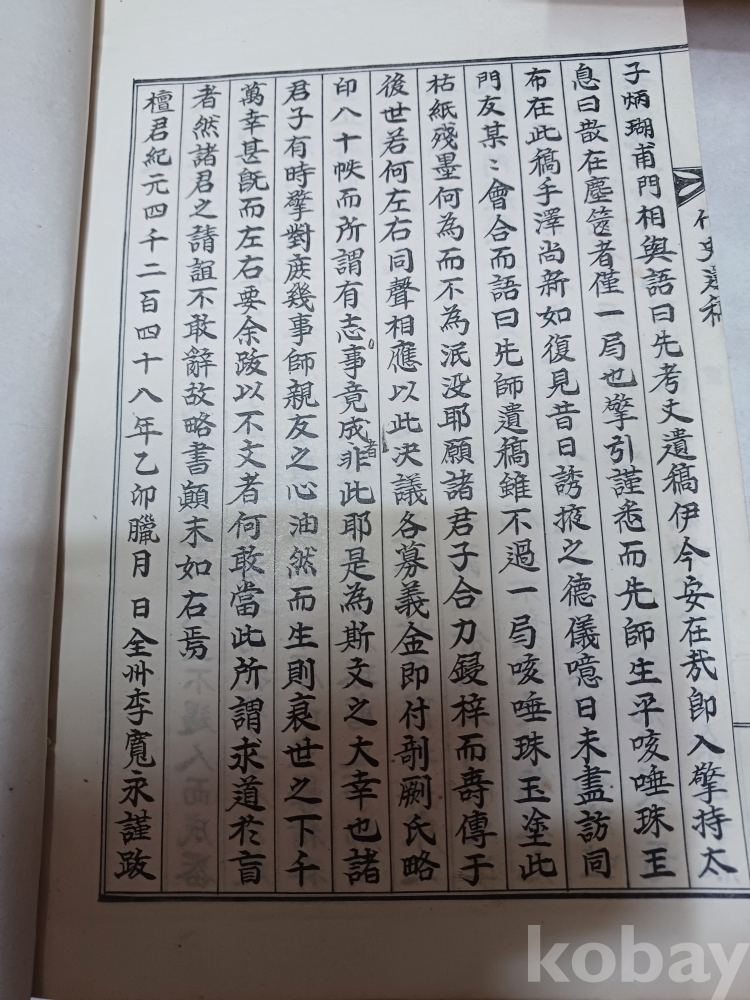 子炳瑚甫門相與語曰先考丈遺稿伊今安在哉卽入擎持太
息曰散在塵篋者僅一局也擎引謹悉而先師生平咳唾珠玉
布在此稿手澤尚新如復見昔日誘掖之德儀噫日未盡訪同
門友某〻會合而語曰先師遺稿雖不過一局咳唾珠玉塗此
枯紙殘墨何為而不為泯没耶願諸君子合力鋟梓而壽傳于
後世若何左右同聲相應以此决議各募義金即付剞劂氏略
印八十帙而所謂有志事竟成非此耶是為斯文之大幸也諸
者
君子有時擎對庶幾事師親友之心油然而生則衰世之下千
萬幸甚旣而左右要余跋以不文者何敢當此所謂求道於盲
者然諸君之請誼不敢辭故略書顛末如右焉
檀君紀元四千二百四十八年乙卯臘月 日全州李寬永謹跋
kobay